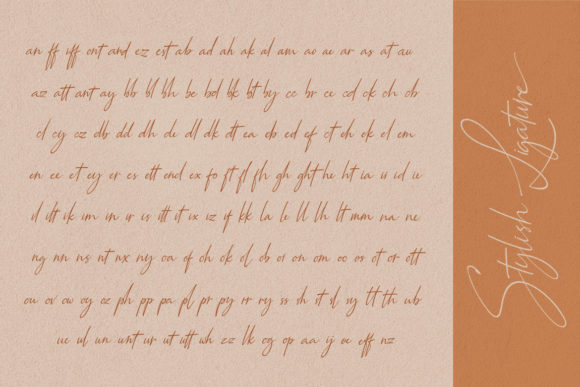 an ff iff ont and ez est ab ad ah ak al am ao ae ar as at au
az att ant ay bb bl bh be bd bk bt by cc br ce cd ck ch cb
cl cy cz db dd dh de dl dk dt ea eb ed ef ct eh ek el em
en ee et ey er es ett end ex fo ft fl fh gh ght he ht ia ii id ie
il itt ik im in ir is itt it ix iz if kk la le ll lh lt mm na ne
ng nn ns nt nx ny oa of oh ok ol ob oi on om oo os ot or ott
ou ov ow oy oz ph pp pa pl pr py rr ry ss sh st sl sy tt th ub
ue ul un unt ur ut utt wh zz lk og op aa ij oe eff nz
Stylish Ligature